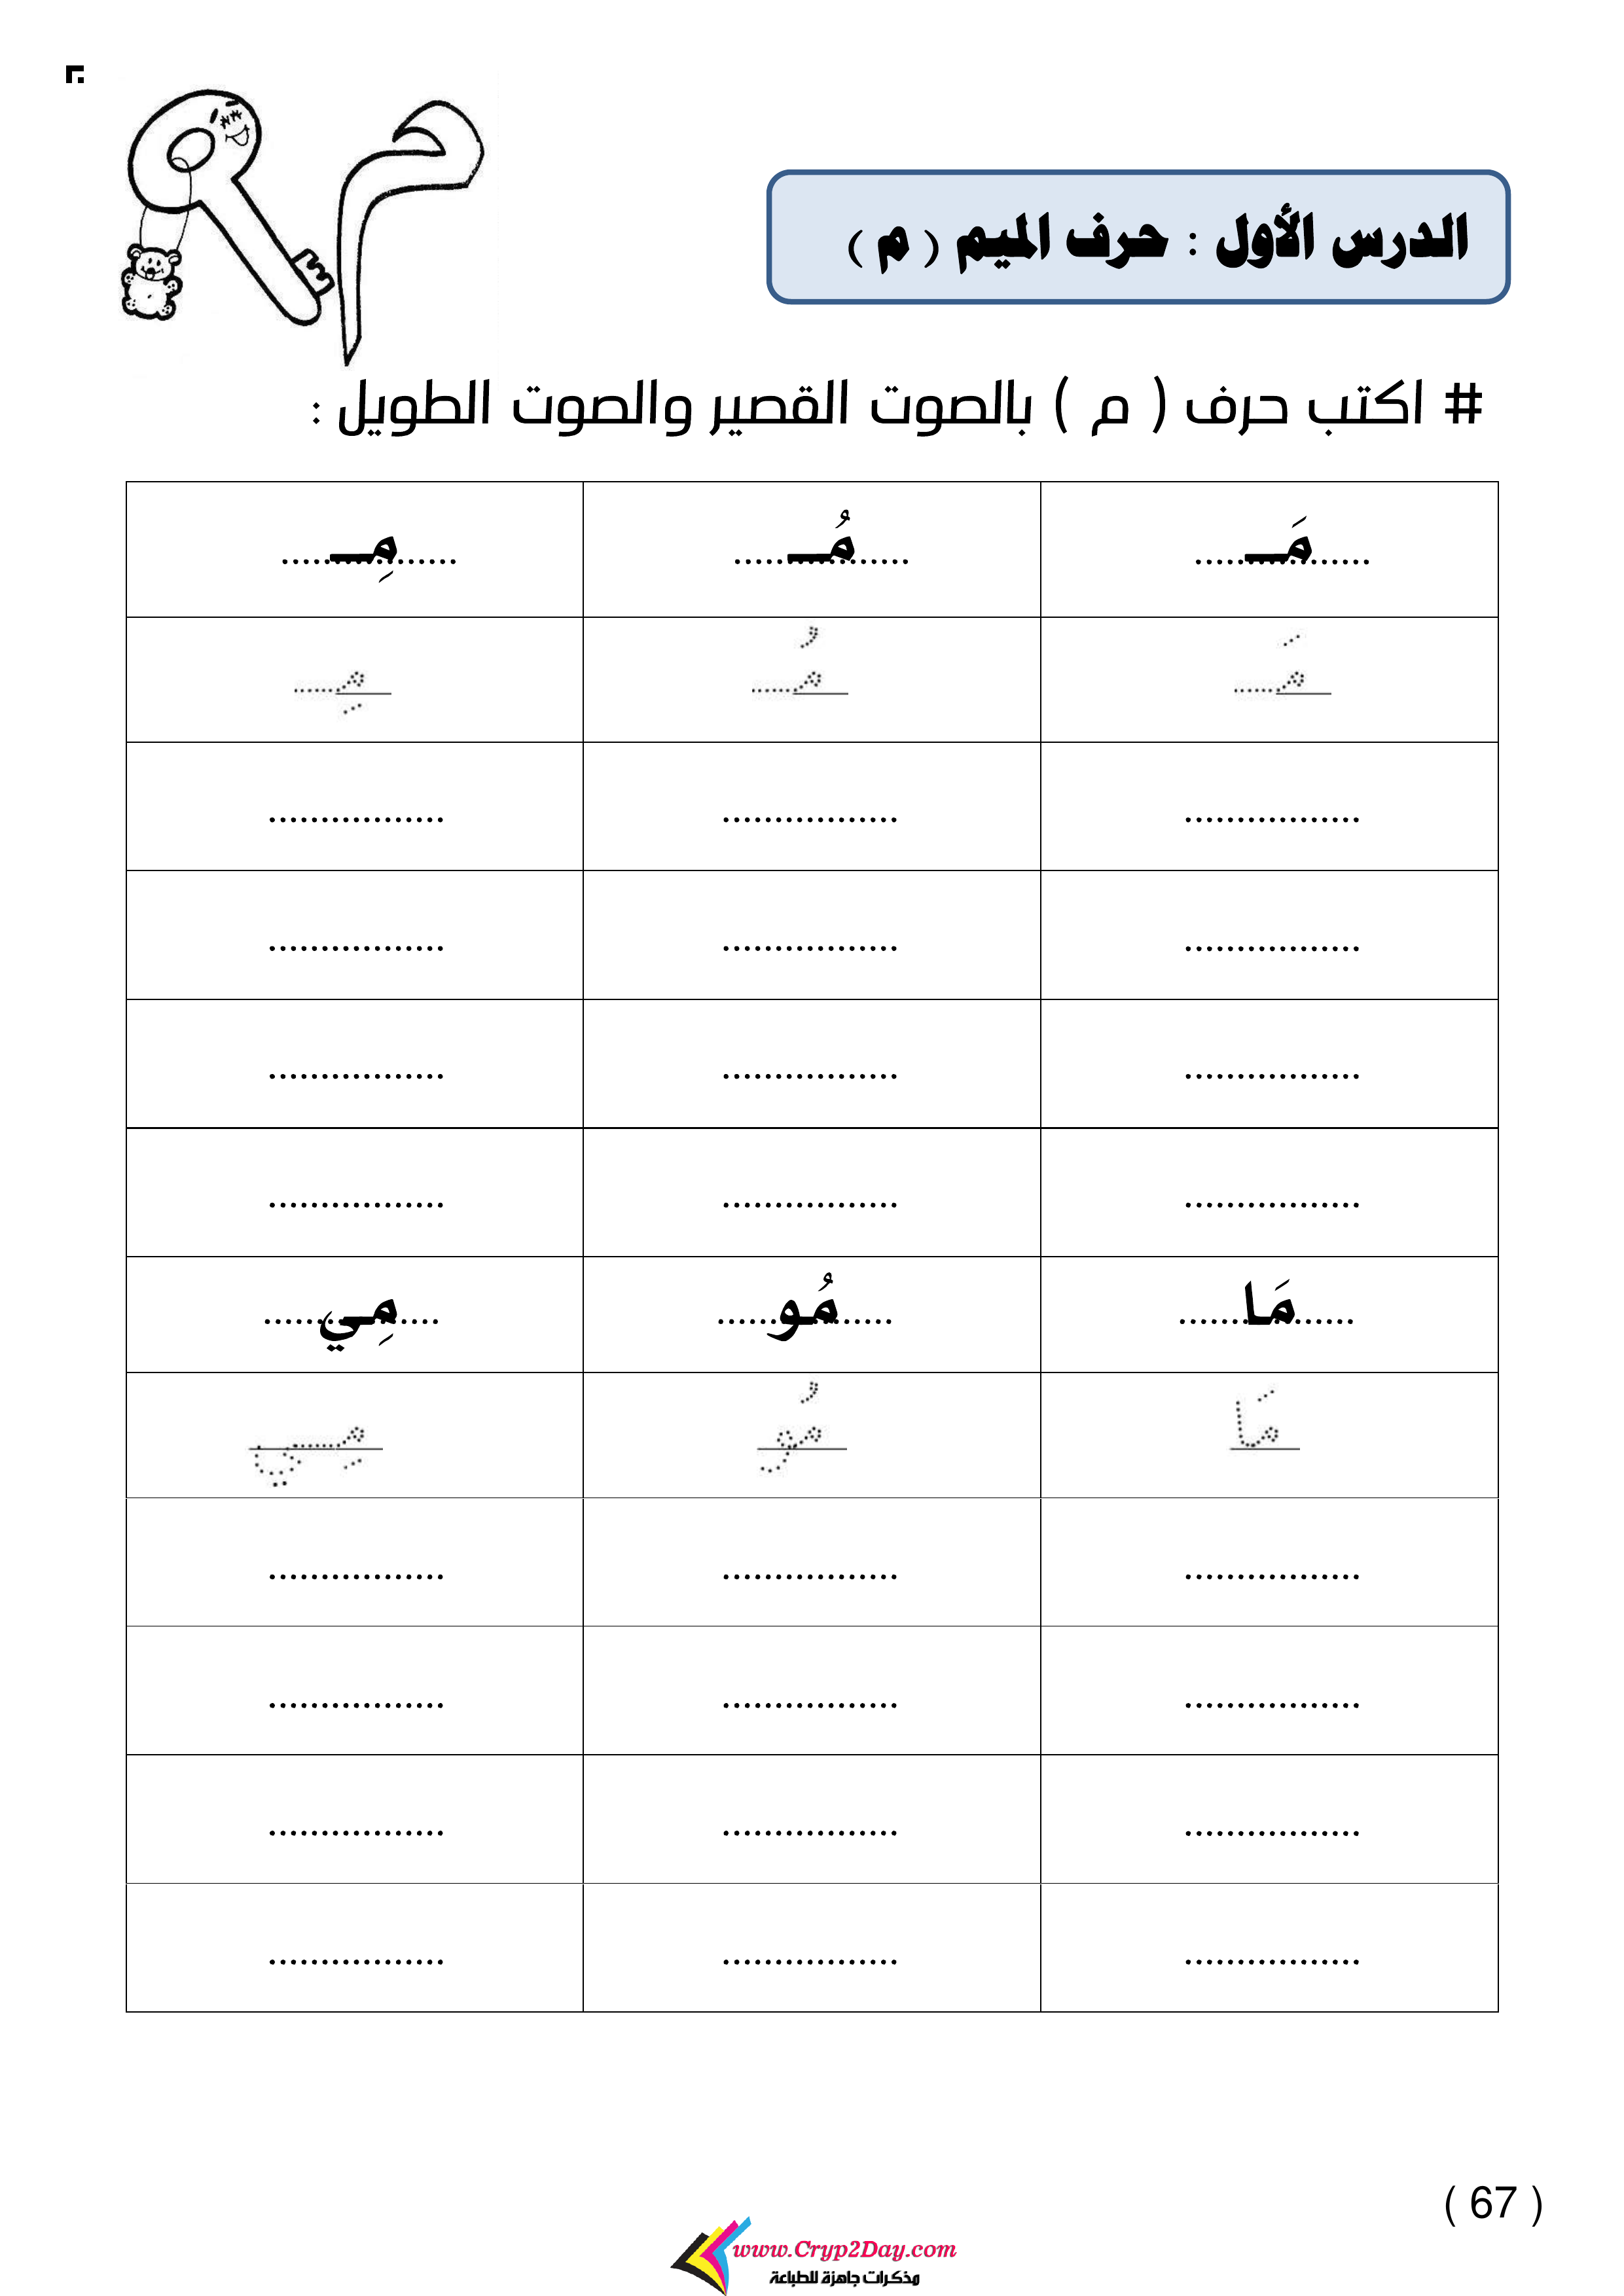 الدرس الأول : حرف الميم ( م )
م
# اكتب حرف ( م ) بالصوت القصير والصوت الطويل :
مَـ مُـ مِـ
مَـ مُـ مِـ
................. ................. .................
................. ................. .................
................. ................. .................
................. ................. .................
مَا مُو مِي
مَا مُو مِي
................. ................. .................
................. ................. .................
................. ................. .................
................. ................. .................
( 67 )
www.Cryp2Day.com
مذكرات جاهزة للطباعة